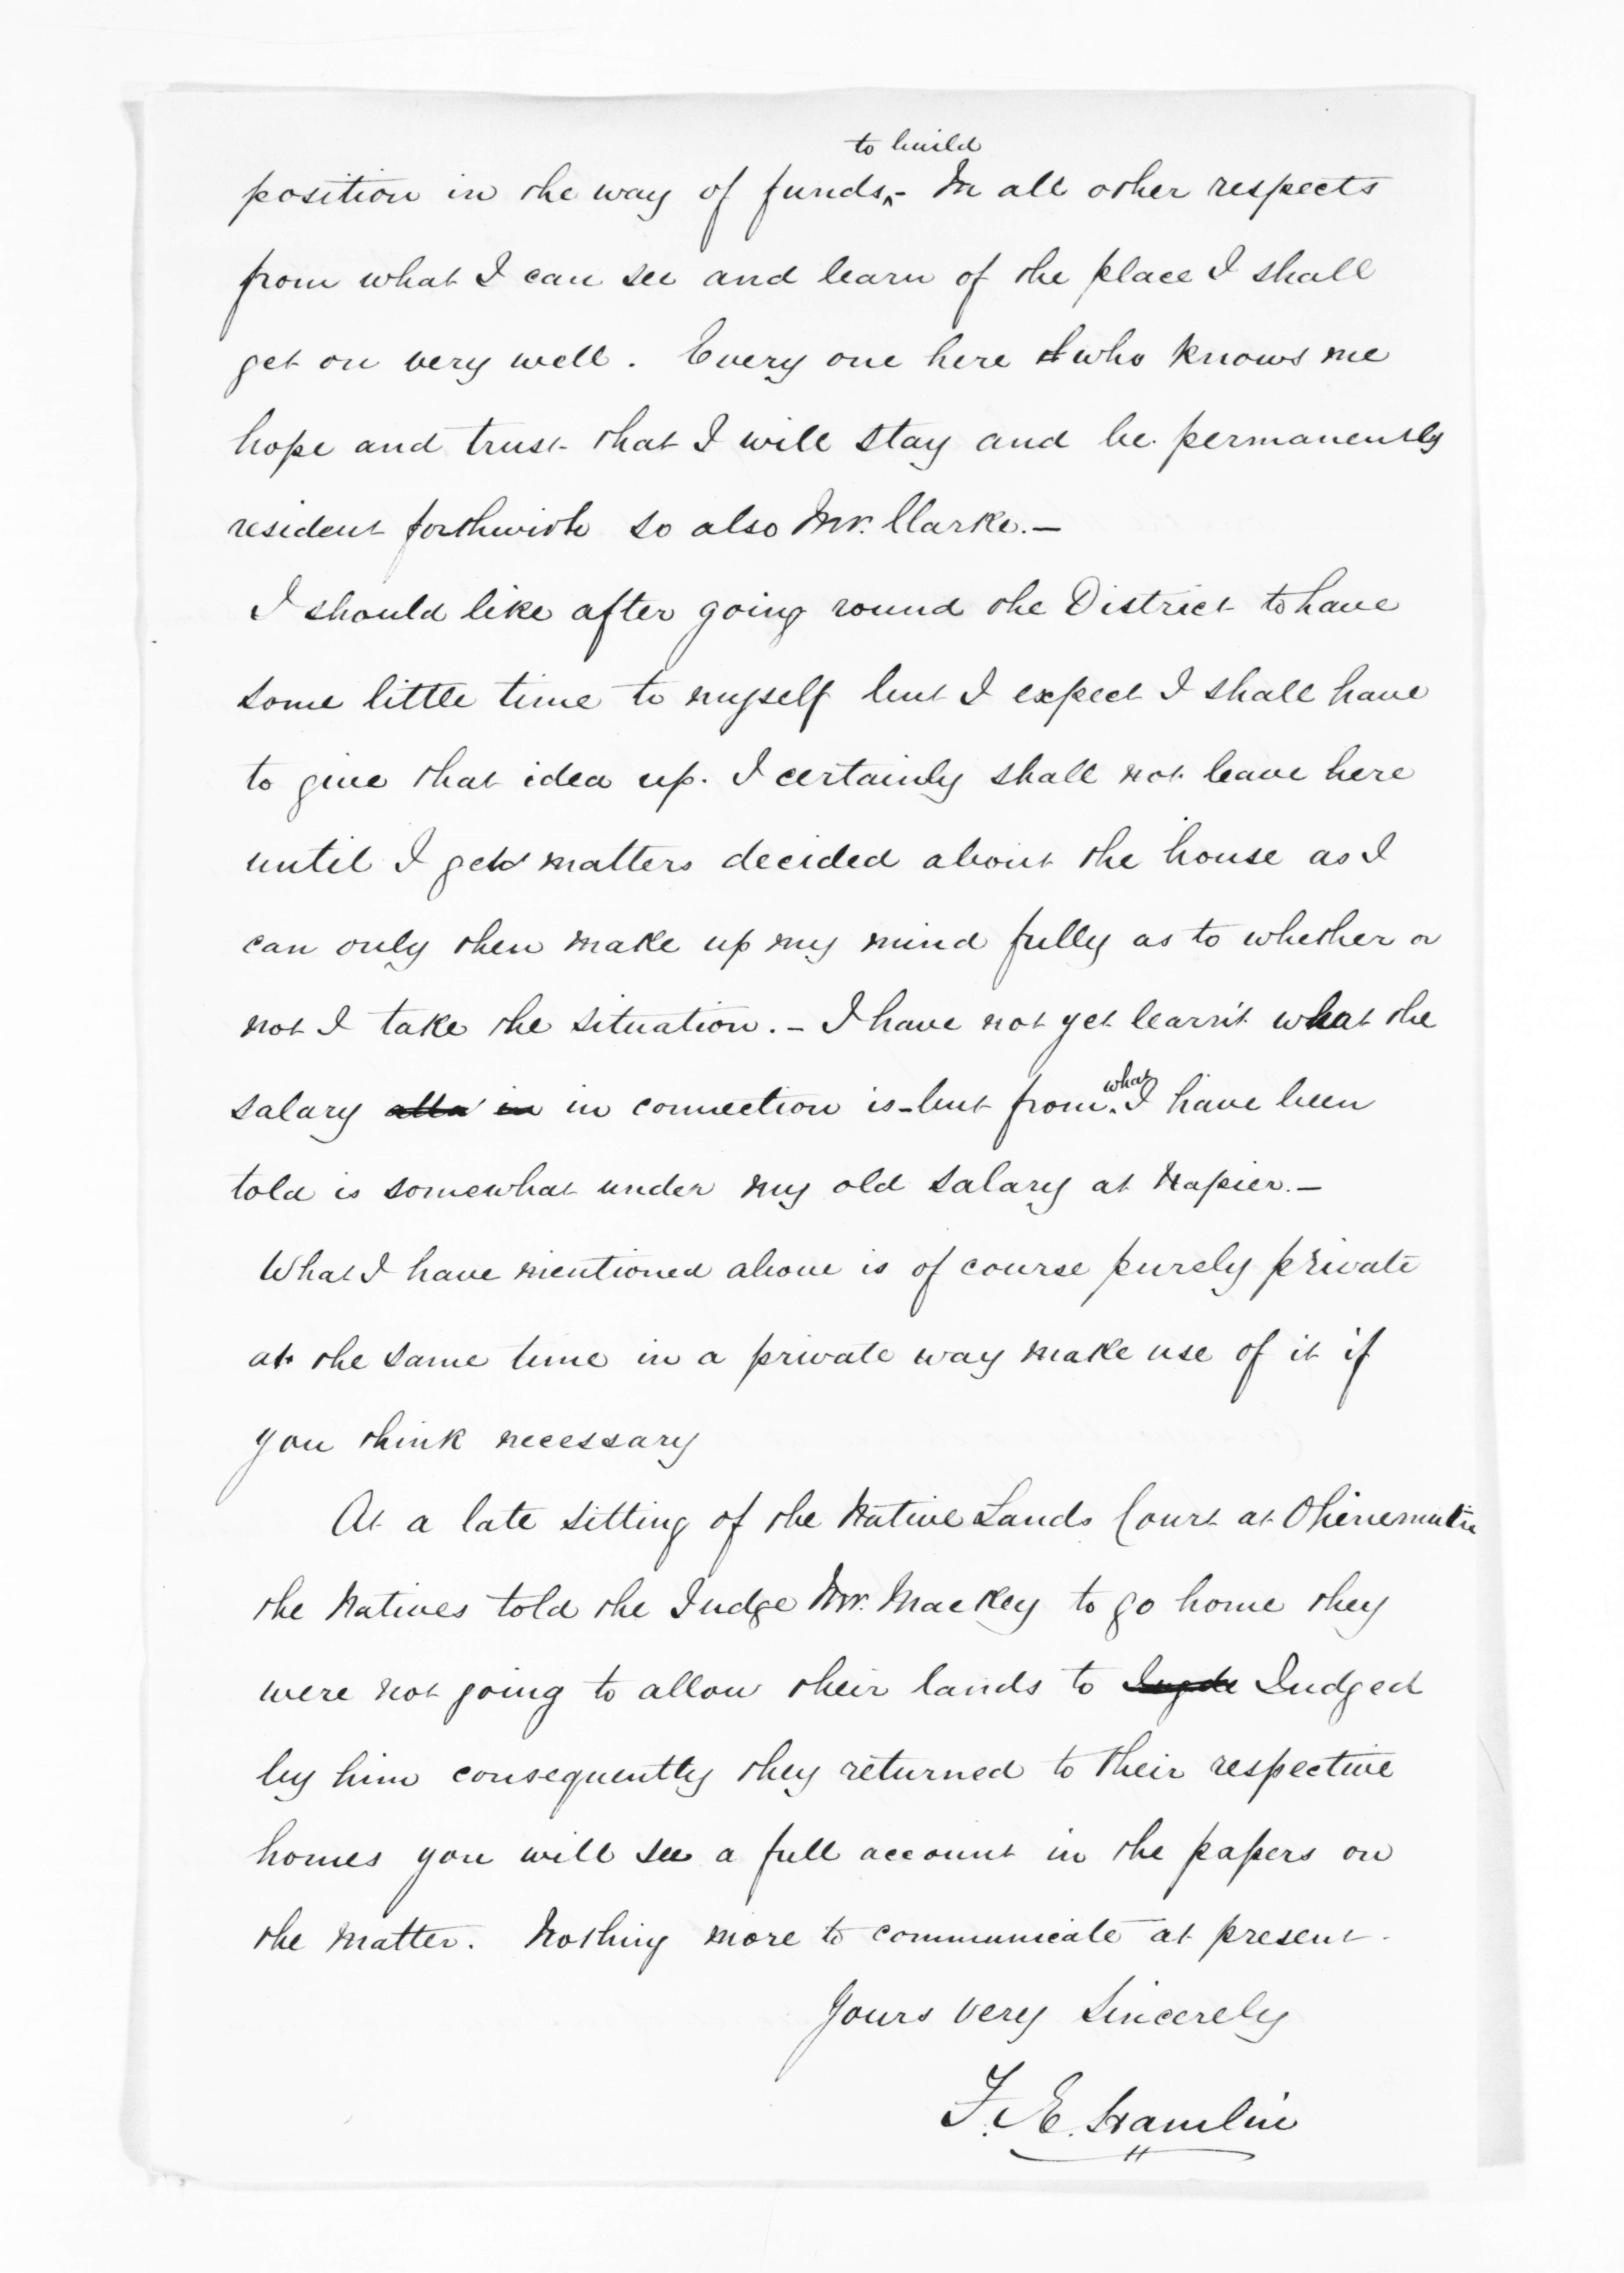 to build
position in the way of funds - In all other respects
from what I can see and learn of the place I shall
get on very well. Every one here who knows me
hope and trust that I will stay and be permanently
resident forthwith so also Mr. Clarke. —
I should like after going round the District to have
some little time to myself but I expect I shall have
to give that idea up. I certainly shall not leave here
until I get matters decided about the house as I
can only then make up my mind fully as to whether or
not I take the situation. - I have not yet learn't what the
what
salary in connection is - but from I have been
told is somewhat under my old salary at Napier. —
What I have mentioned above is of course purely private
at the same time in a private way make use of it if
you think necessary
At a late sitting of the Native Lands Court at Ohinemutu
the Natives told the Judge Mr. Mackey to go home they
were not going to allow their lands to Judged
by him consequently they returned to their respective
homes you will see a full account in the papers on
the matter. Nothing more to communicate at present.
Yours very Sincerely
F. E. Hamlin